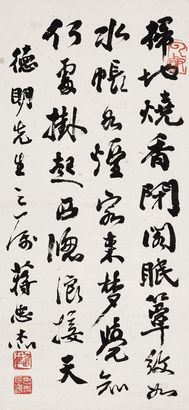 掃地燒香閉閣眠簟紋如
水帳如煙客來夢覺知
何處掛起西牕浪接天
德明先生之屬 蔣忠杰